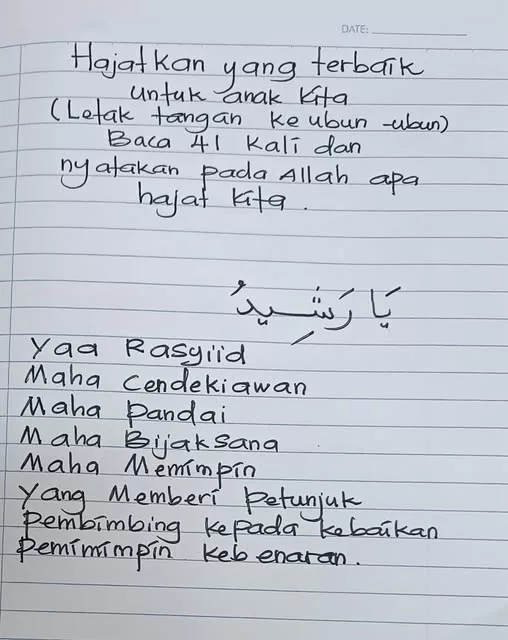 DATE:
Hajatkan yang terbaik
untuk anak kita
(Letak tangan ke ubun-ubun)
Baca 41 kali dan
nyatakan pada Allah apa
hajat kita.
يَا رَشِيدُ
Yaa Rasyiid
Maha Cendekiawan
Maha Pandai
Maha Bijaksana
Maha Memimpin
Yang Memberi Petunjuk
Pembimbing kepada kebaikan
Pemimimpin kebenaran.